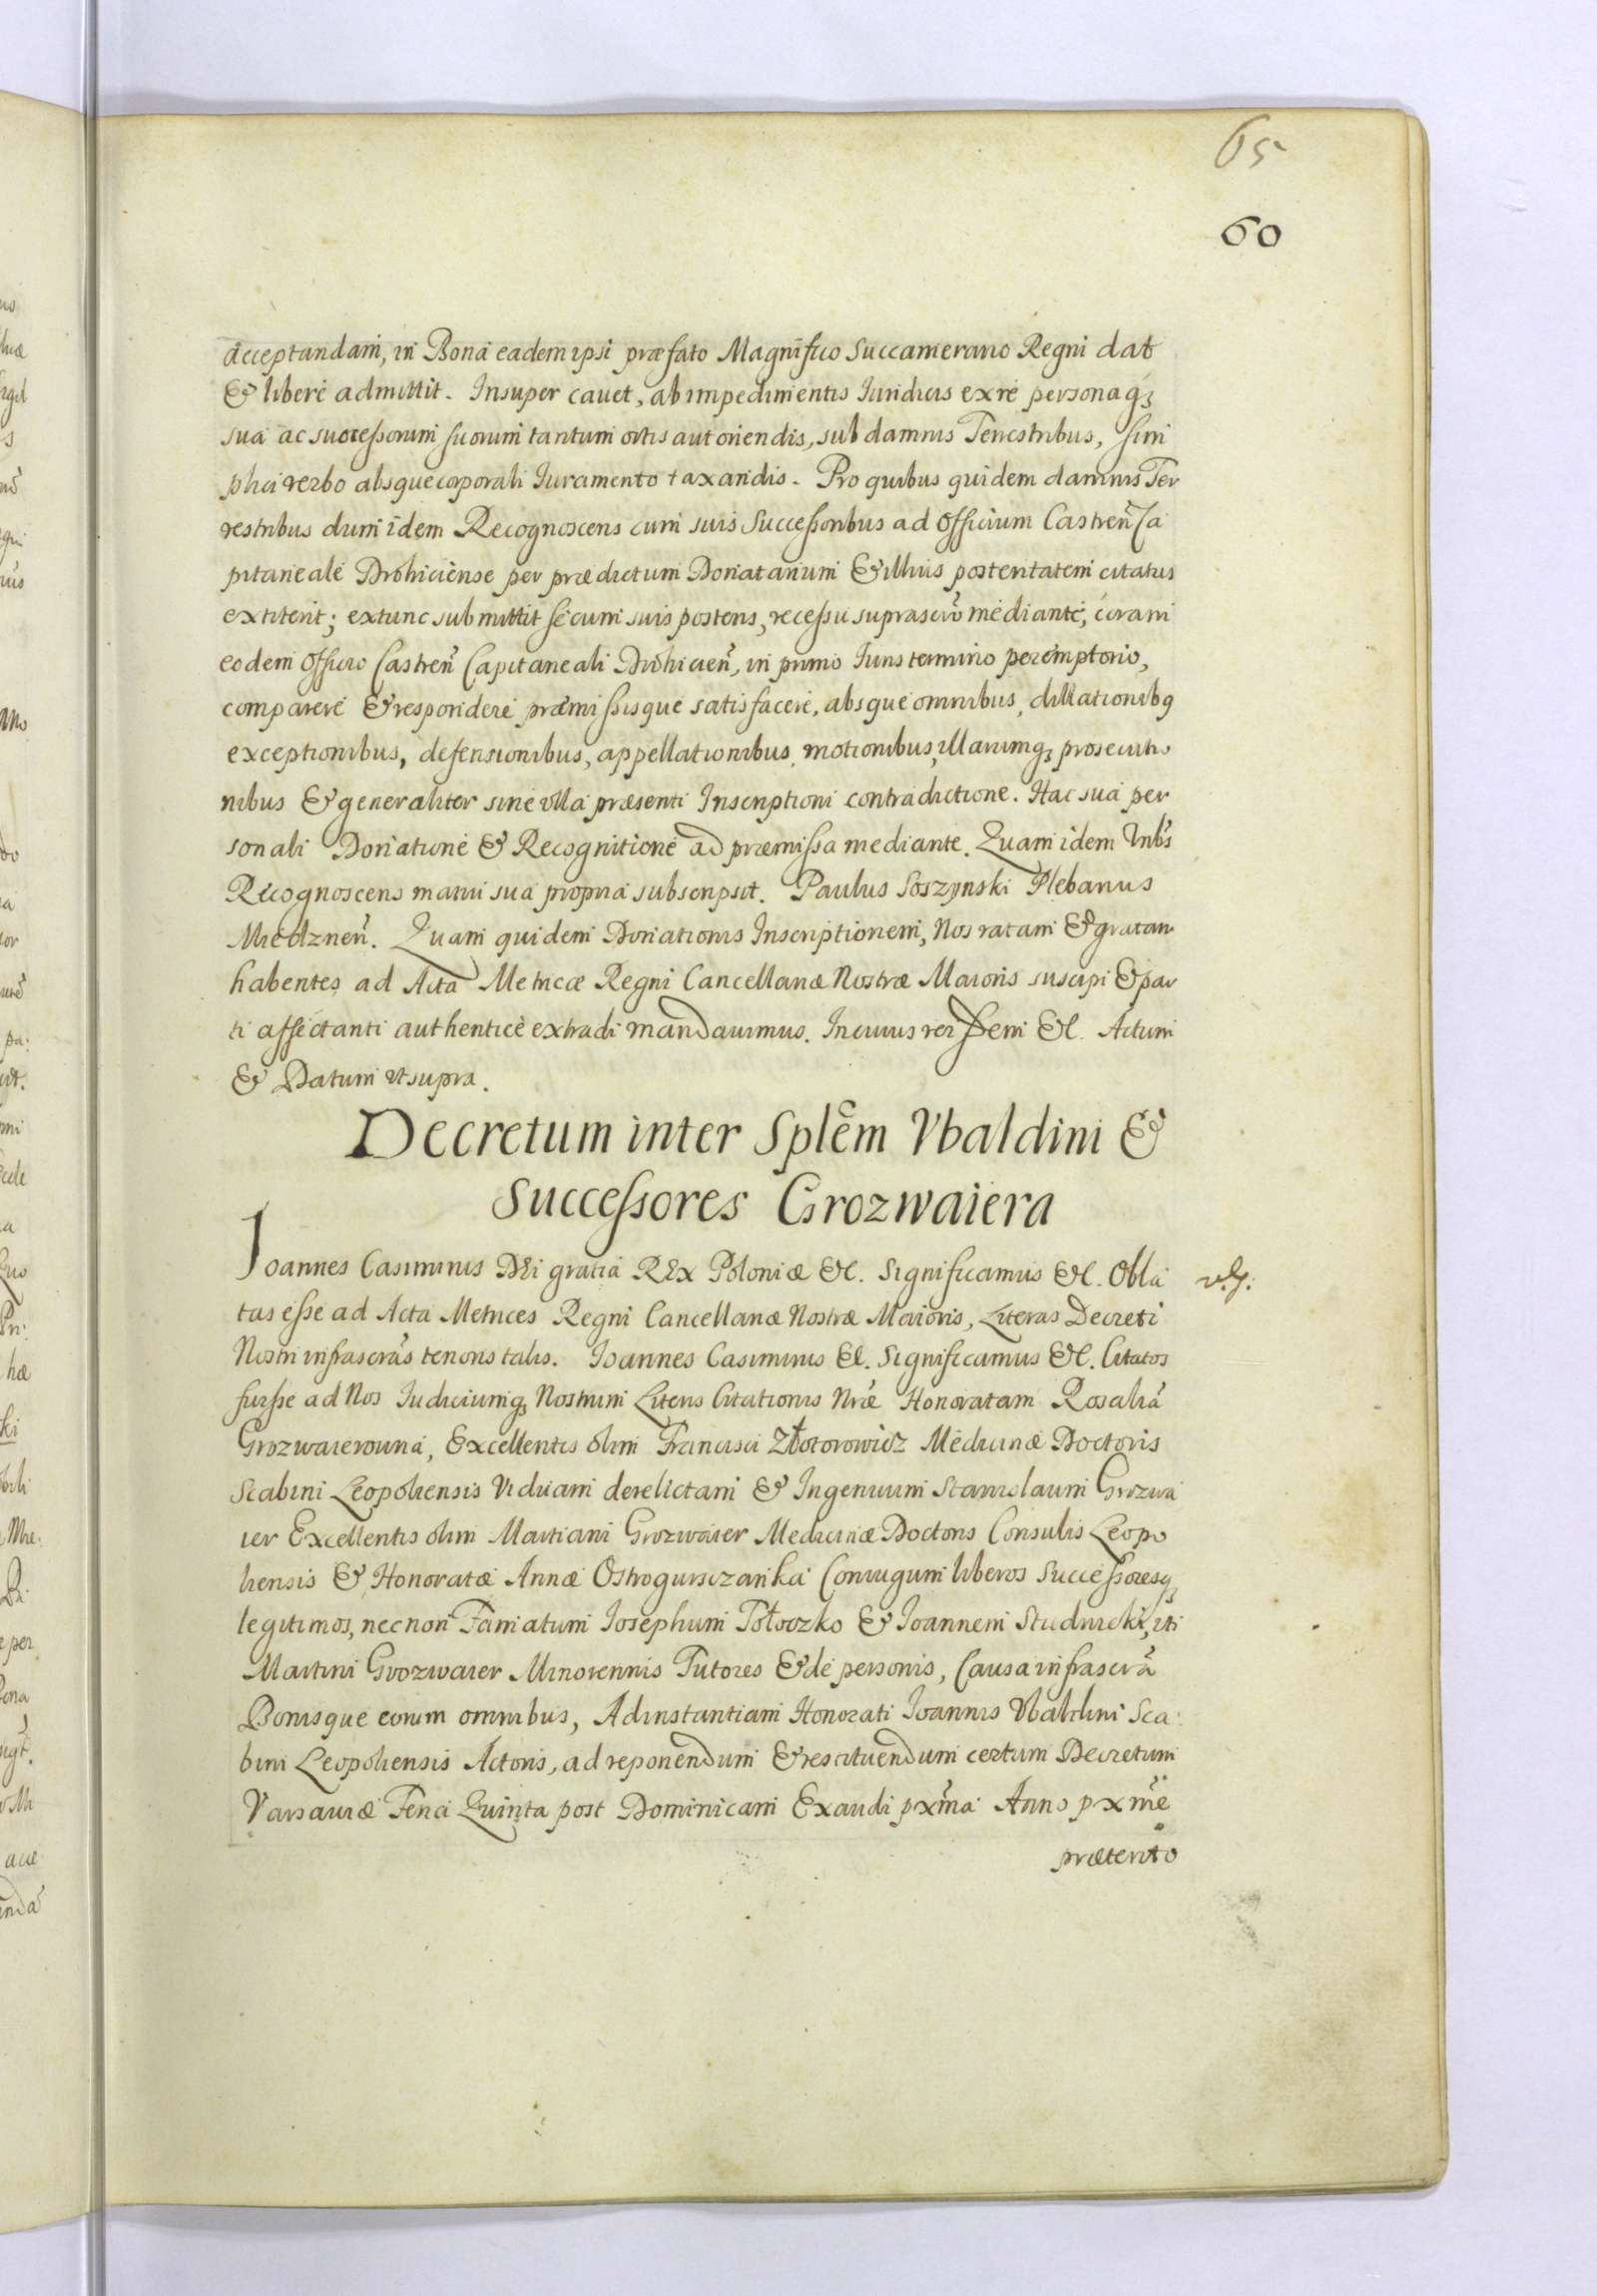 65
60
acceptandam, in Bona eadem ipsi præfato Magnifico Succamerario Regni dat
& liberè admittit. Insuper cavet, ab impedimentis Iuridicis ex rè persona q3
sua ac successorum suorum tantum ortis aut oriendis, sub damnis Terrestribus, sim
plici verbo absque corporali Iuramento taxandis. Pro quibus quidem damnis Ter
restribus dum idem Recognoscens cum suis Successoribus ad Officium Castren̄ Ca
pitaneale Drohiciense per prædictum Donatarium & illius posteritatem citatus
extiterit; extunc submittit se cum suis posteris, recessu suprascr̄o mediante, coram
eodem Officio Castren̄ Capitaneali Drohicien̄, in primo Iuris termino peremptorio,
comparere & respondere præmissisque satisfacere, absque omnibus, dillationib9
exceptionibus, defensionibus, appellationibus, motionibus, illarumq3 prosecutio
nibus & generaliter sine ulla præsenti Inscriptioni contradictione. Hac sua per
sonali Donatione & Recognitione ad præmissa mediante. Quam idem Vnb̄s
Recognoscens manu sua propria subscripsit. Paulus Soszynski Plebanus
Miedznen̄. Quam quidem Donationis Inscriptionem, Nos ratam & gratam
habentes ad Acta Metricæ Regni Cancellariæ Nostræ Maioris suscipi & par
ti affectanti authenticè extradi mandavimus. In cuius rei fidem &c. Actum
& Datum ut supra.
Decretum inter Splēm Vbaldini &
Successores Grozwaiera
Ioannes Casimirus DEi gratia REx Poloniæ &c. Significamus &c. Obla
tas esse ad Acta Metrices Regni Cancellariæ Nostræ Maioris, Literas Decreti
Nostri infrascr̄as tenoris talis. Ioannes Casimirus &c. Significamus &c. Citatos
fuisse ad Nos Iudiciumq3 Nostrum Literis Citationis Nr̄æ Honoratam Rosaliā
Grozwaierowna, Excellentis olim Francisci Złotorowicz Medicinæ Doctoris
Scabini Leopoliensis Viduam derelictam & Ingenuum Stanislaum Grozwa
ier Excellentis olim Martiani Grozwaier Medicinæ Doctoris Consulis Leopo
liensis & Honoratæ Annæ Ostrogurszczanka Coniugum liberos Successoresq3
legitimos, nec non Famatum Iosephum Połoczko & Ioannem Studnicki, uti
Martini Grozwaier Minorennis Tutores & de personis, Causa infrascr̄a
Bonisque eorum omnibus, Ad instantiam Honorati Ioannis Vbaldini Sca
bini Leopoliensis Actoris, ad reponendum & restituendum certum Decretum
Varsaviæ Feria Quinta post Dominicam Exaudi px̄ma Anno px̄me
præterito